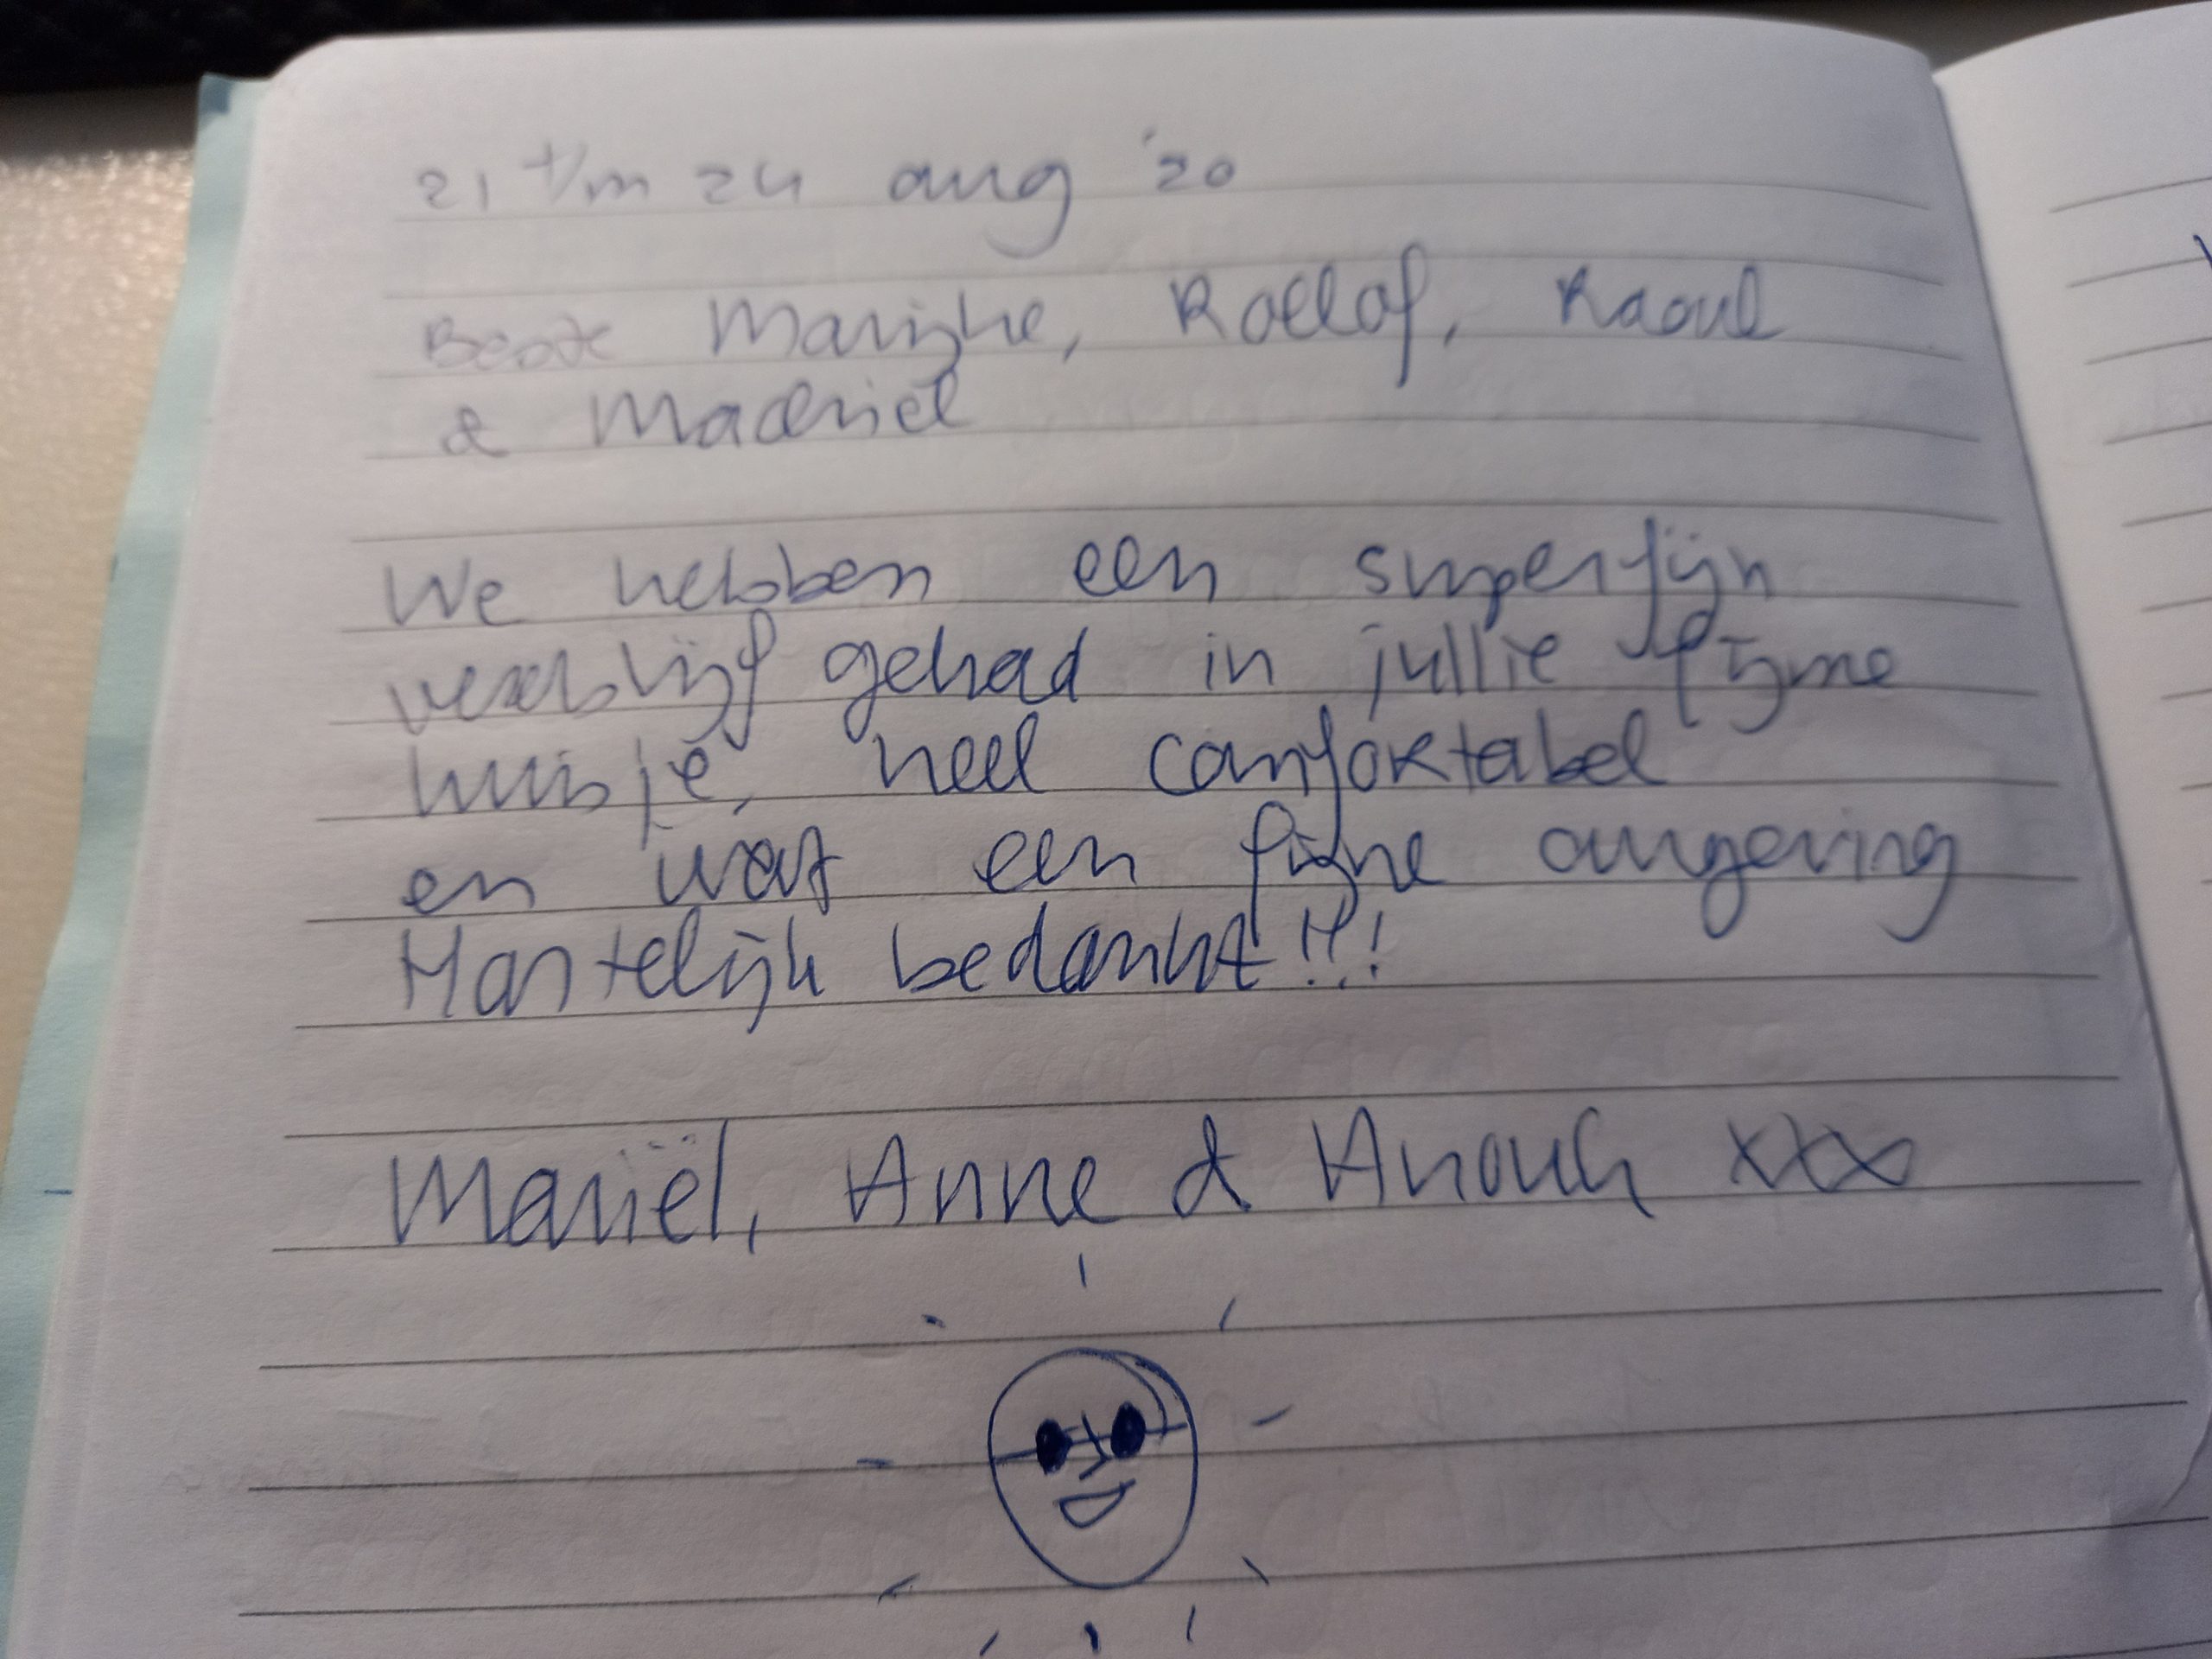 21 t/m 24 aug '20
Beste Marijke, Roelof, Raoul
&
We hebben een superfijn
verblijf gehad in jullie fijne
huisje, heel comfortabel
en wat een fijne omgeving
Hartelijk bedankt!!!
Mariël, Anne & Anouk xxx